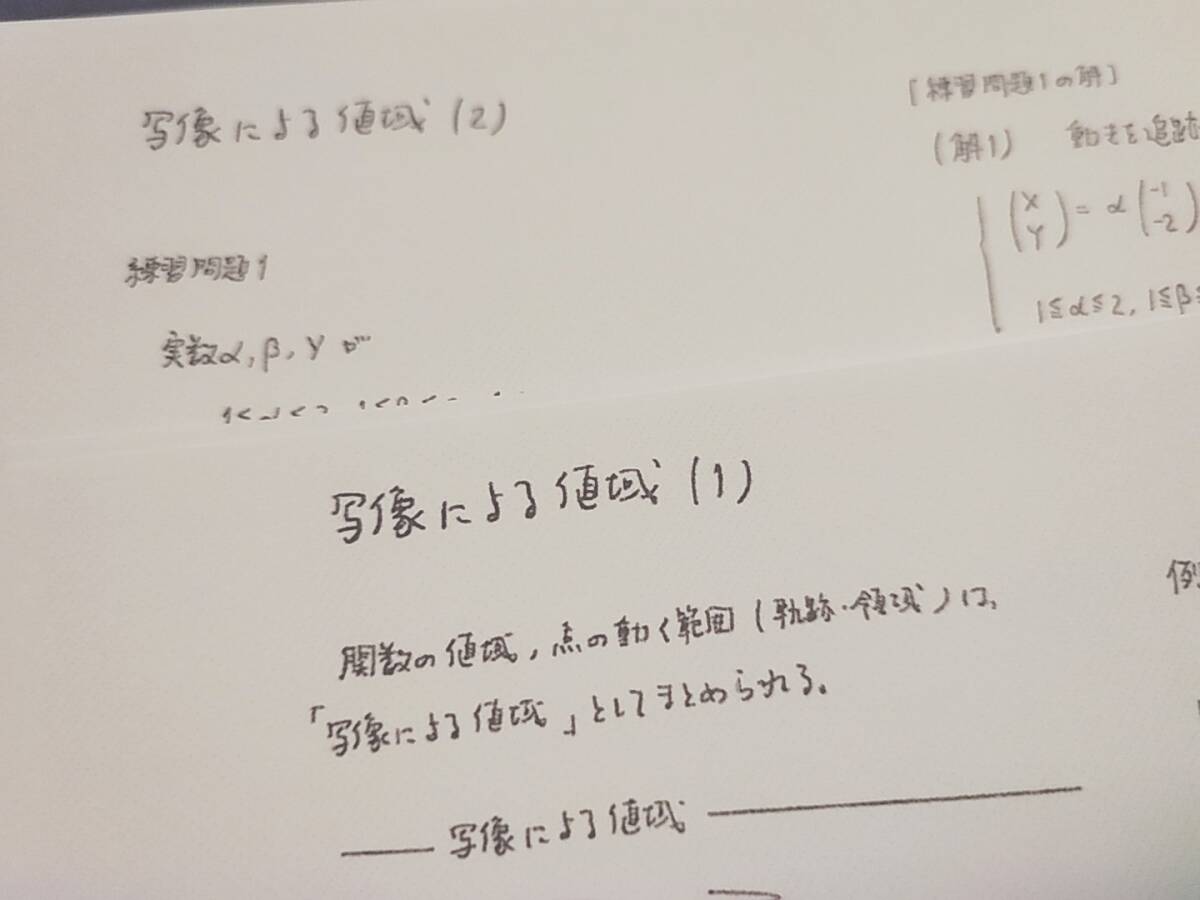 写像による値域(2)
練習問題1
実数α,β,γが
[練習問題1の解]
(解1) 動きを追跡
(X Y) = α(-1 -2)
1≦α≦2, 1≦β≦
写像による値域(1)
関数の値域,点の動く範囲(軌跡・領域)は、
「写像による値域」としてまとめられる。
写像による値域
例